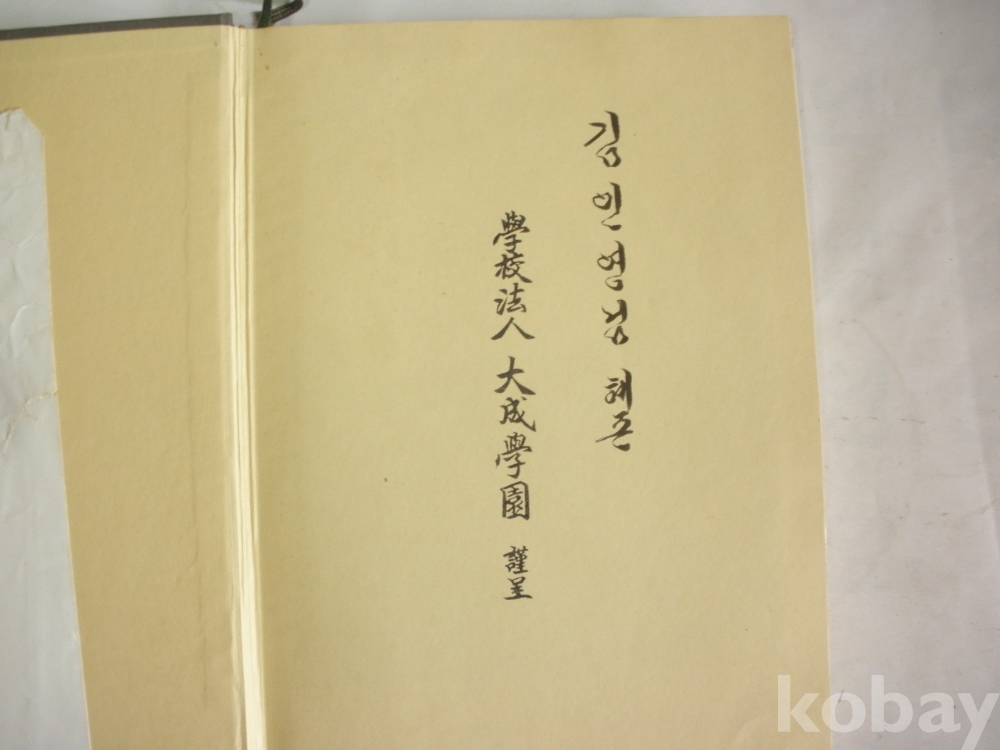 김인영님 혜존
學校法人 大成學園 謹呈
kobay